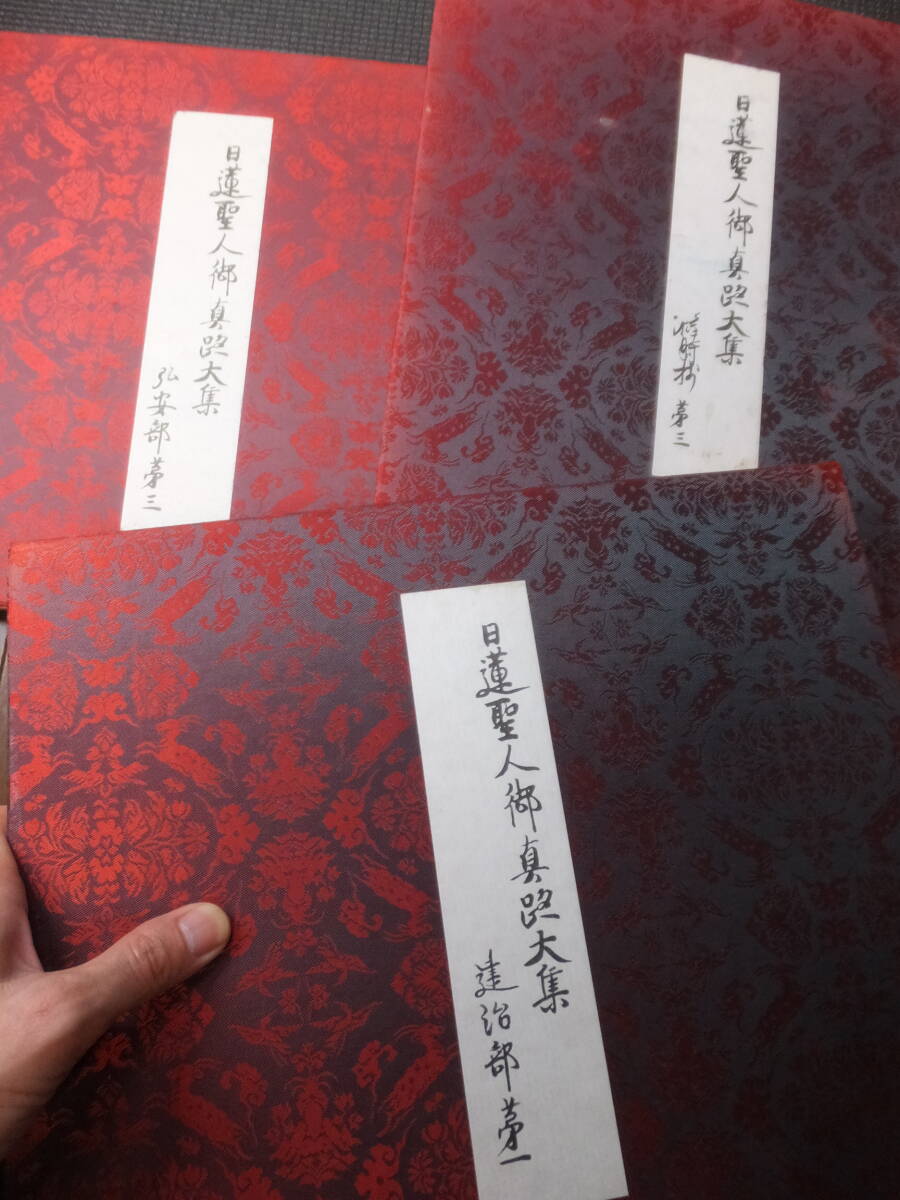 日蓮聖人御真跡大集
弘安部第三
日蓮聖人御真跡大集
撰時抄 第三
日蓮聖人御真跡大集
建治部第一